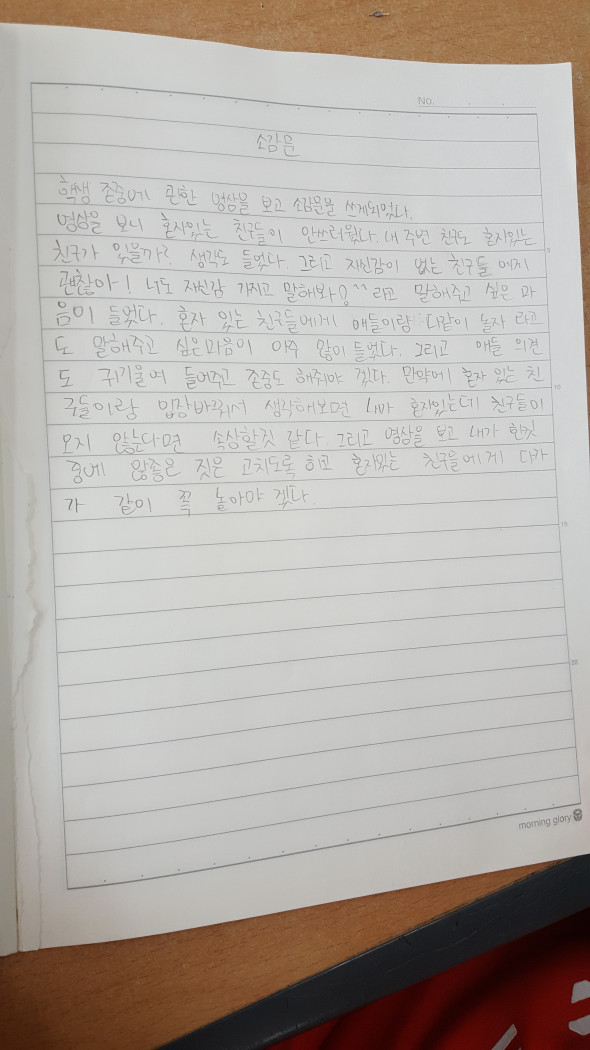 No.
소감문
학생 존중에 관한 영상을 보고 소감문을 쓰게되었다.
영상을 보니 혼자있는 친구들이 안쓰러웠다. 내 주변 친구도 혼자있는
친구가 있을까? 생각도 들었다. 그리고 자신감이 없는 친구들 에게
괜찮아! 너도 자신감 가지고 말해봐^^ 라고 말해주고 싶은 마
음이 들었다. 혼자 있는 친구들에게 애들이랑 다같이 놀자 라고
도 말해주고 싶은마음이 아주 많이 들었다. 그리고 애들 의견
도 귀기울여 들어주고 존중도 해줘야 겠다. 만약에 혼자 있는 친
구들이랑 입장바꿔서 생각해보면 내가 혼자있는데 친구들이
오지 않는다면 속상할것 같다. 그리고 영상을 보고 내가 한짓
중에 않좋은 짓은 고치도록 하고 혼자있는 친구들에게 다가
가 같이 꼭 놀아야 겠다.
5
10
15
20
morning glory